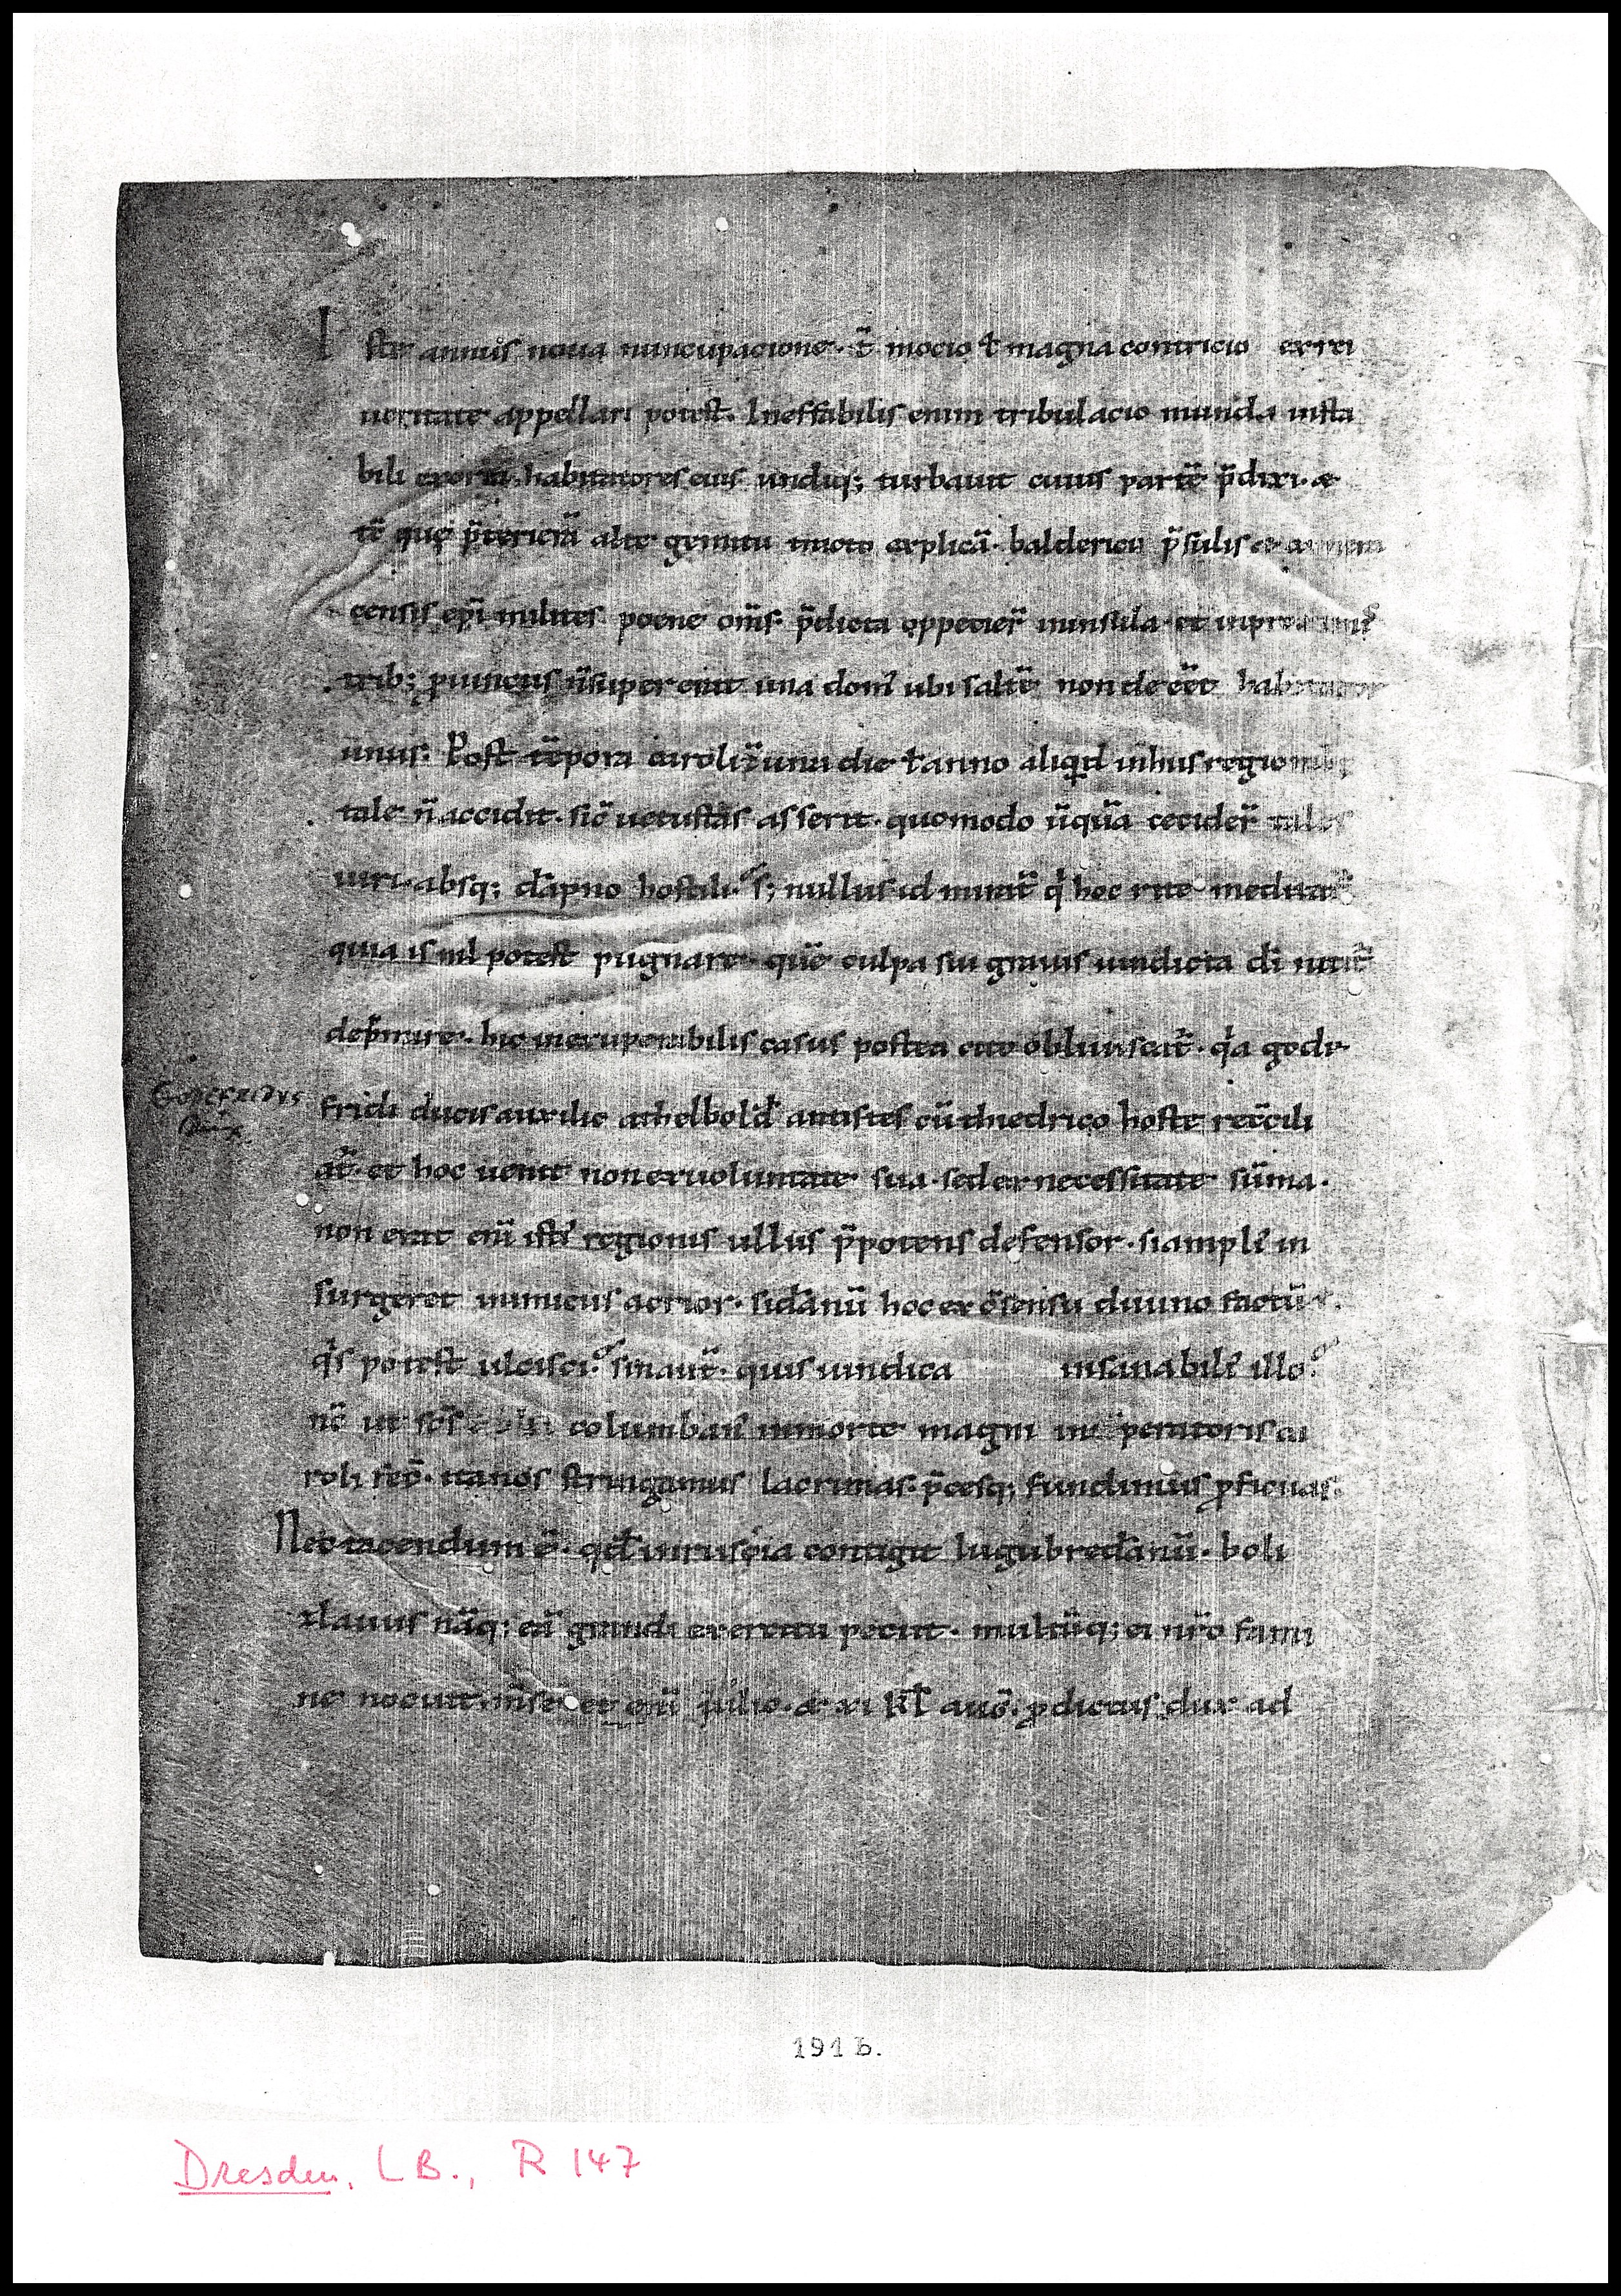 Iste annus noua nuncupacione · t̄ mocio ł magna contricio ex rei
ueritate appellari potest. Ineffabilis enim tribulacio munda insta
bili exorta. habitatores eius undiq; turbauit cuius partē p̄dixi. &
tē quę p̄terierā alte gemitu explicā. balderici p̄sulis &
censis ep̄i milites poene om̄s. p̄dicta oppecier̄ in insula. et in
trib; puinciis n̄ supererat una dom' ubi saltē non deēet
unus: Post tēpora caroli una die ł anno aliqd in hiis
tale n̄ accidit. sic̄ uetustas asserit. quomodo ūquā cecider̄ tales
uiri. absq; dāpno hostili. s; nullus id mirat̄ q' hoc rite meditat̄
quia is nil potest pugnare. quē culpa sui grauis uindicta dī nitit̄
dep̄mire. hic inexuperabilis casus postea cito obliuiscat̄. q'a gode
Godefridus
Dux
fridi ducis auxilio athelbold' antistes cū thiedrico hoste recc̄ili
at̄. et hoc uenit non ex uoluntate sua. sed ex necessitate sūma.
non erat enī isti' regionis ullus p̄potens defensor. si ampli' in
surgeret inimicus acrior. si dānū hoc ex c̄sensu diuino factū ē.
q's potest ulcisci. sin aut̄. quis uindica insanabili' illo.
nc̄ ut sc̄s columban' in morte magni im peratoris ca
roli fec̄. ita nos stringamus lacrimas. p̄cesq; fundimus pficuas.
Nec tacendum ē. qd̄ in ruscia contigit lugubre dānū. boli
zlauus nāq; eā grandi exercitu peciit. multūq; ei nr̄o famı
ne nocuit. julio. & xi kl̄ auḡ. p̄dictus dux ad
191 b.
Dresden, LB., R 147